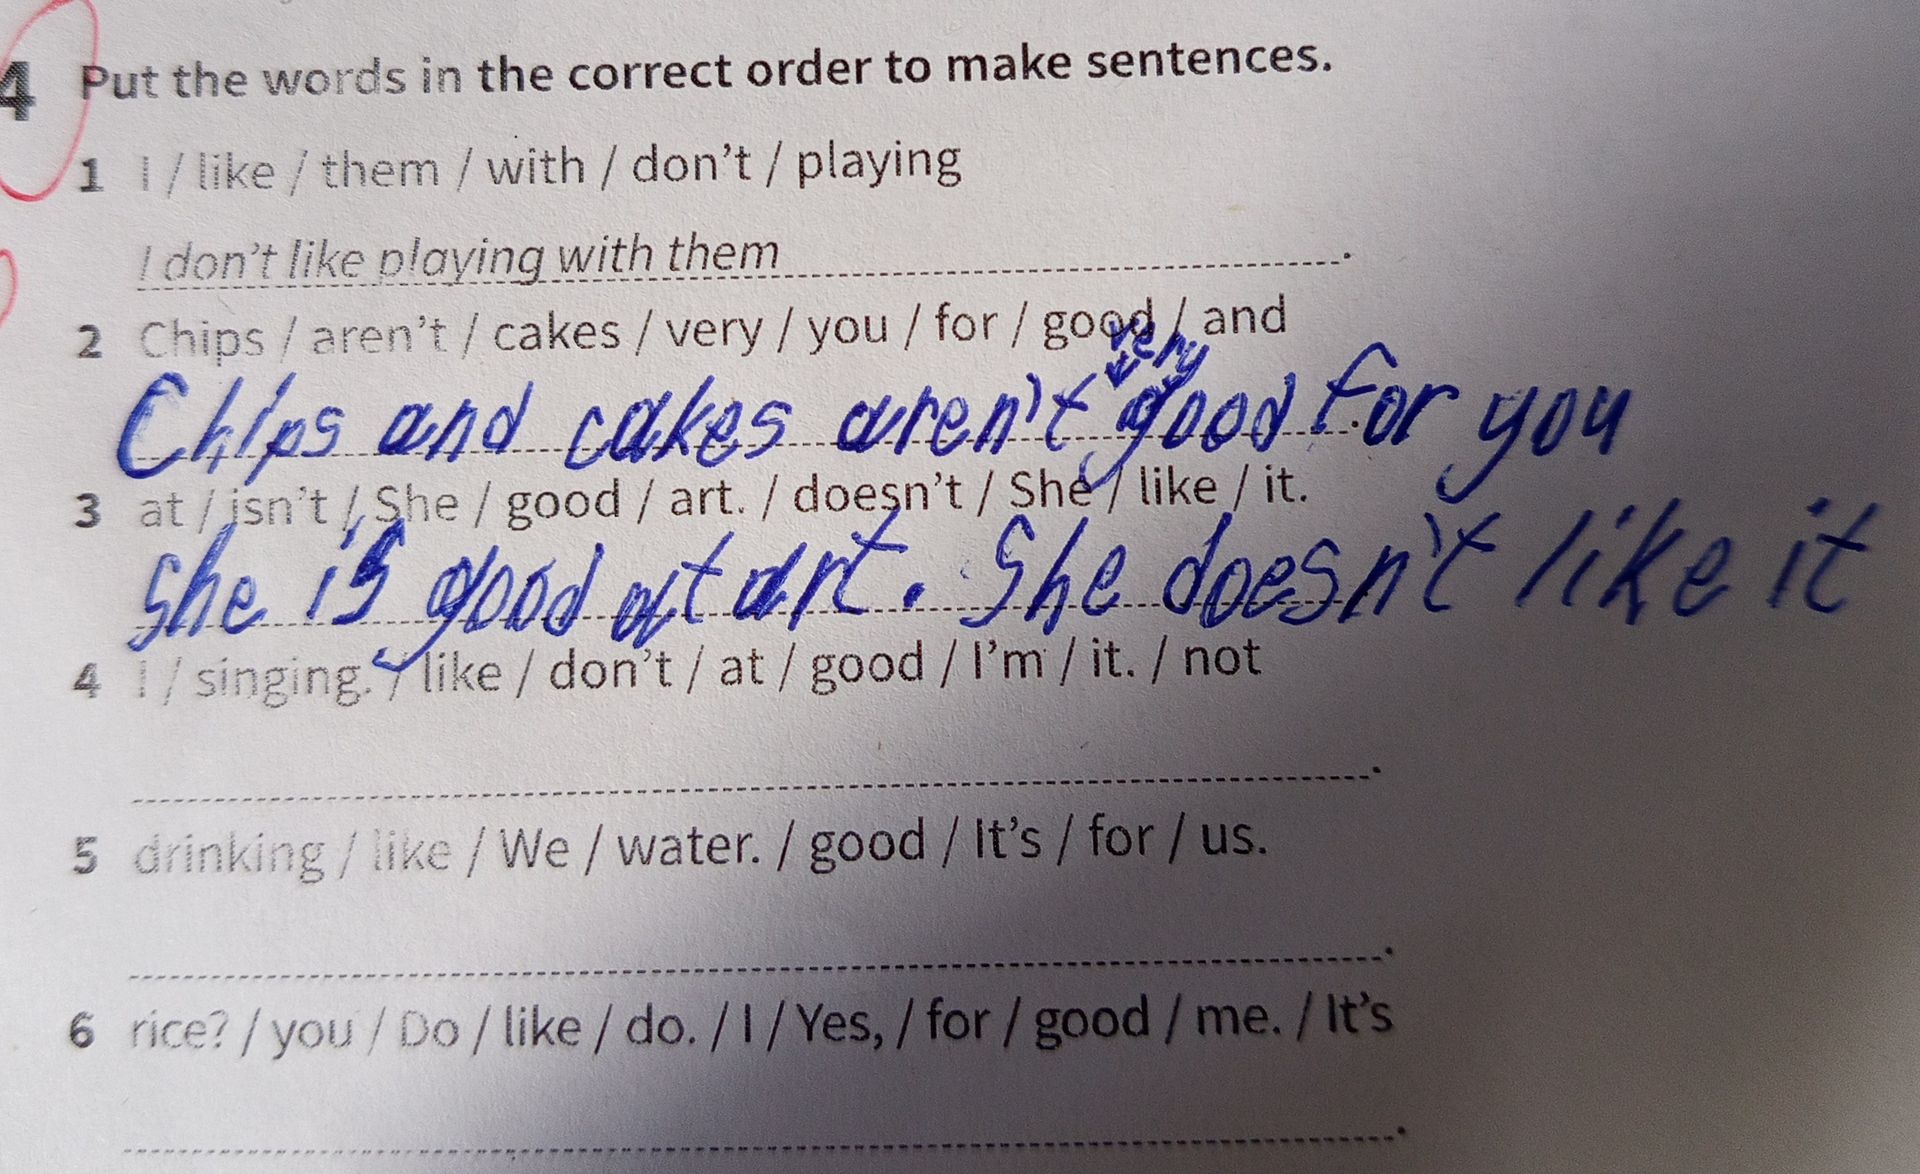 4 Put the words in the correct order to make sentences.
1 I / like / them / with / don't / playing
I don't like playing with them.
2 Chips / aren't / cakes / very / you / for / good / and
very
Chips and cakes aren't good for you.
3 at / isn't / She / good / art. / doesn't / She / like / it.
She is good at art. She doesn't like it
4 I / singing. / like / don't / at / good / I'm / it. / not
5 drinking / like / We / water. / good / It's / for / us.
6 rice? / you / Do / like / do. / I / Yes, / for / good / me. / It's